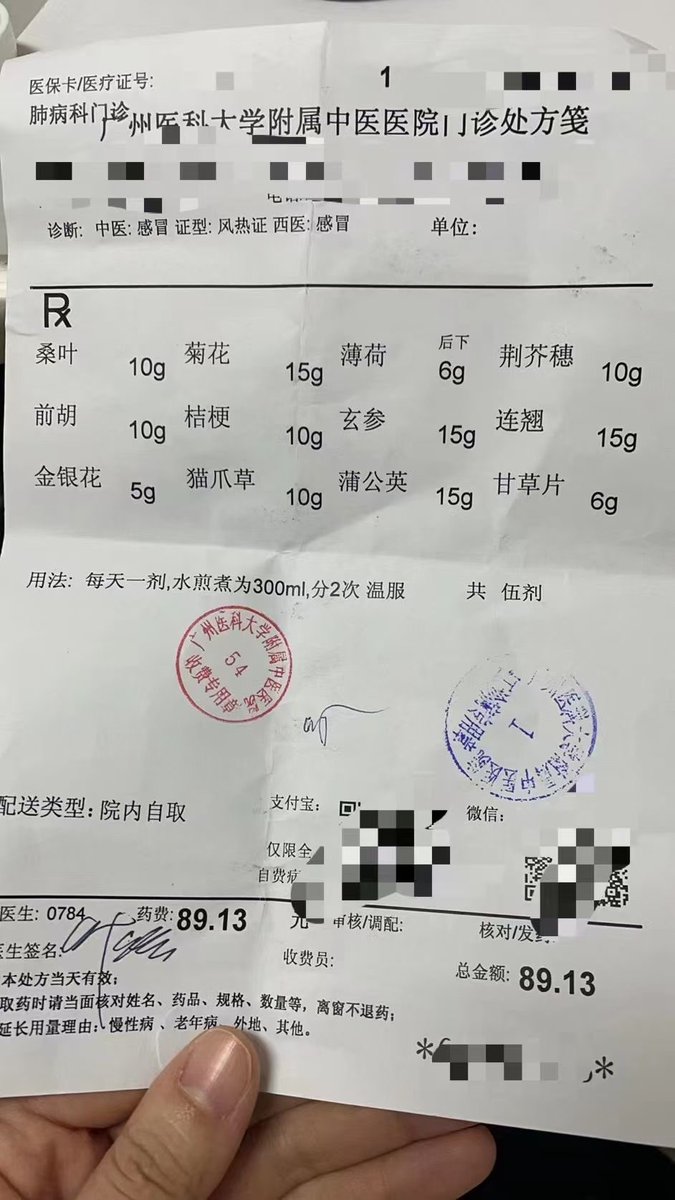 医保卡/医疗证号:
1
肺病科门诊
广州医科大学附属中医医院门诊处方笺
诊断: 中医: 感冒 证型: 风热证 西医: 感冒 单位:
Rx
桑叶 10g 菊花 15g 薄荷 后下 6g 荆芥穗 10g
前胡 10g 桔梗 10g 玄参 15g 连翘 15g
金银花 5g 猫爪草 10g 蒲公英 15g 甘草片 6g
用法: 每天一剂,水煎煮为300ml,分2次 温服 共 伍剂
广州医科大学附属中医医院
54
收费专用章
1
配送类型: 院内自取
支付宝:
微信:
仅限全
自费病
医生: 0784 药费: 89.13 元 审核/调配: 核对/发药
医生签名: 收费员: 总金额: 89.13
本处方当天有效;
取药时请当面核对姓名、药品、规格、数量等，离窗不退药;
延长用量理由: 慢性病、老年病、外地、其他。